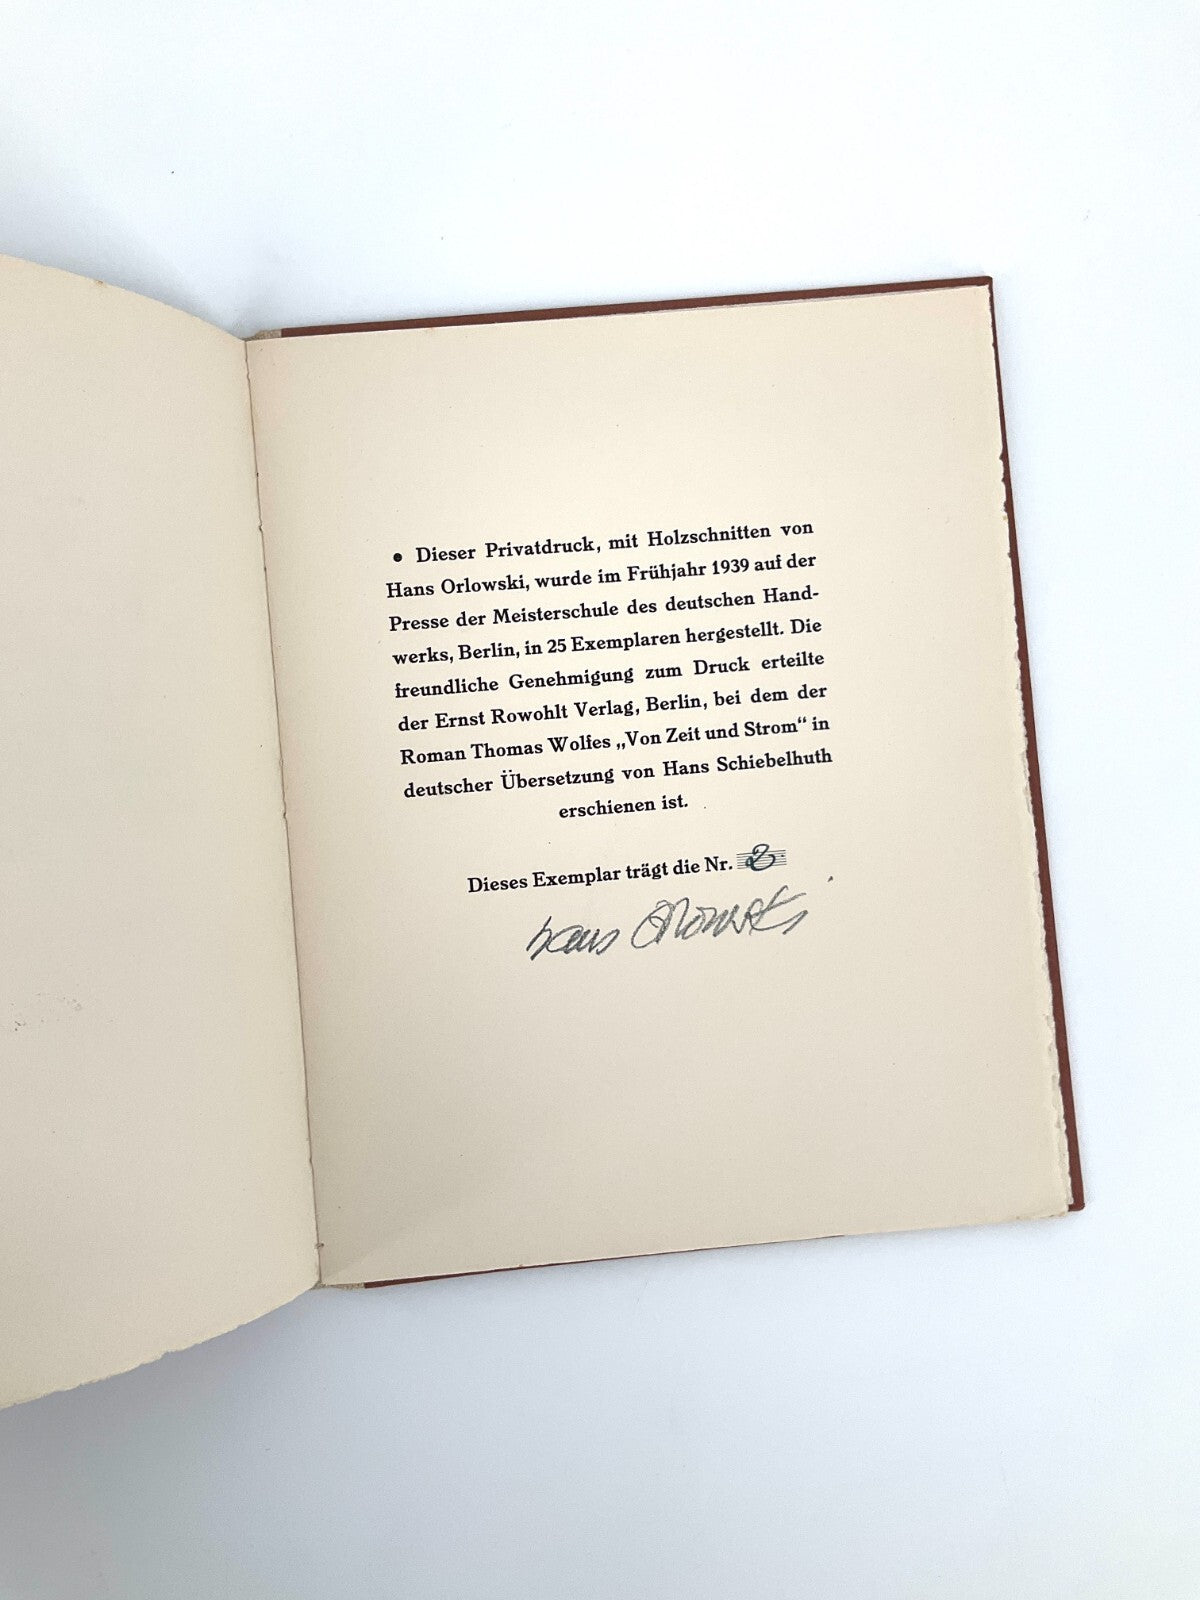 • Dieser Privatdruck, mit Holzschnitten von
Hans Orlowski, wurde im Frühjahr 1939 auf der
Presse der Meisterschule des deutschen Hand-
werks, Berlin, in 25 Exemplaren hergestellt. Die
freundliche Genehmigung zum Druck erteilte
der Ernst Rowohlt Verlag, Berlin, bei dem der
Roman Thomas Wolfes „Von Zeit und Strom“ in
deutscher Übersetzung von Hans Schiebelhuth
erschienen ist.
Dieses Exemplar trägt die Nr. 2.
Hans Orlowski